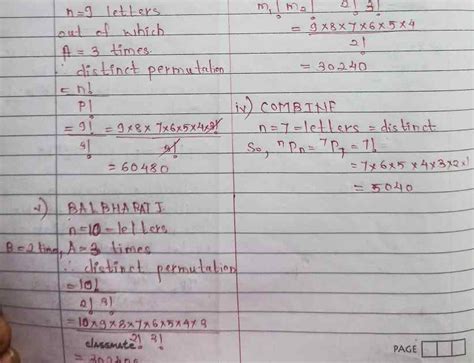 n=9 letters
out of which
A = 3 times
∴ distinct permutation
= n!
P!
= 9! = 9×8×7×6×5×4×3!
3! 3!
= 60480
v) BALBHARATI
n=10-letters
B=2 time, A=3 times
∴ distinct permutation
= 10!
2! 3!
= 10×9×8×7×6×5×4×3
2! 3!
classmate
m₁! m₂! 2! 3!
= 9×8×7×6×5×4
2!
= 30240
iv) COMBINE
n=7=letters = distinct
So, ⁿPₙ = ⁷P₇ = 7!
= 7×6×5×4×3×2×1
= 5040
PAGE